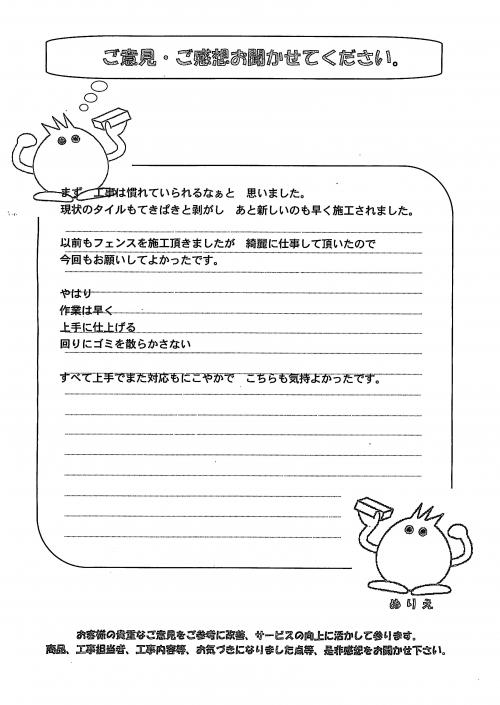 ご意見・ご感想お聞かせてください。
まず　工事は慣れていられるなぁと　思いました。
現状のタイルもてきぱきと剥がし　あと新しいのも早く施工されました。
以前もフェンスを施工頂きましたが　綺麗に仕事して頂いたので
今回もお願いしてよかったです。
やはり
作業は早く
上手に仕上げる
回りにゴミを散らかさない
すべて上手でまた対応もにこやかで　こちらも気持よかったです。
ぬりえ
お客様の貴重なご意見をご参考に改善、サービスの向上に活かして参ります。
商品、工事担当者、工事内容等、お気づきになりました点等、是非感想をお聞かせ下さい。